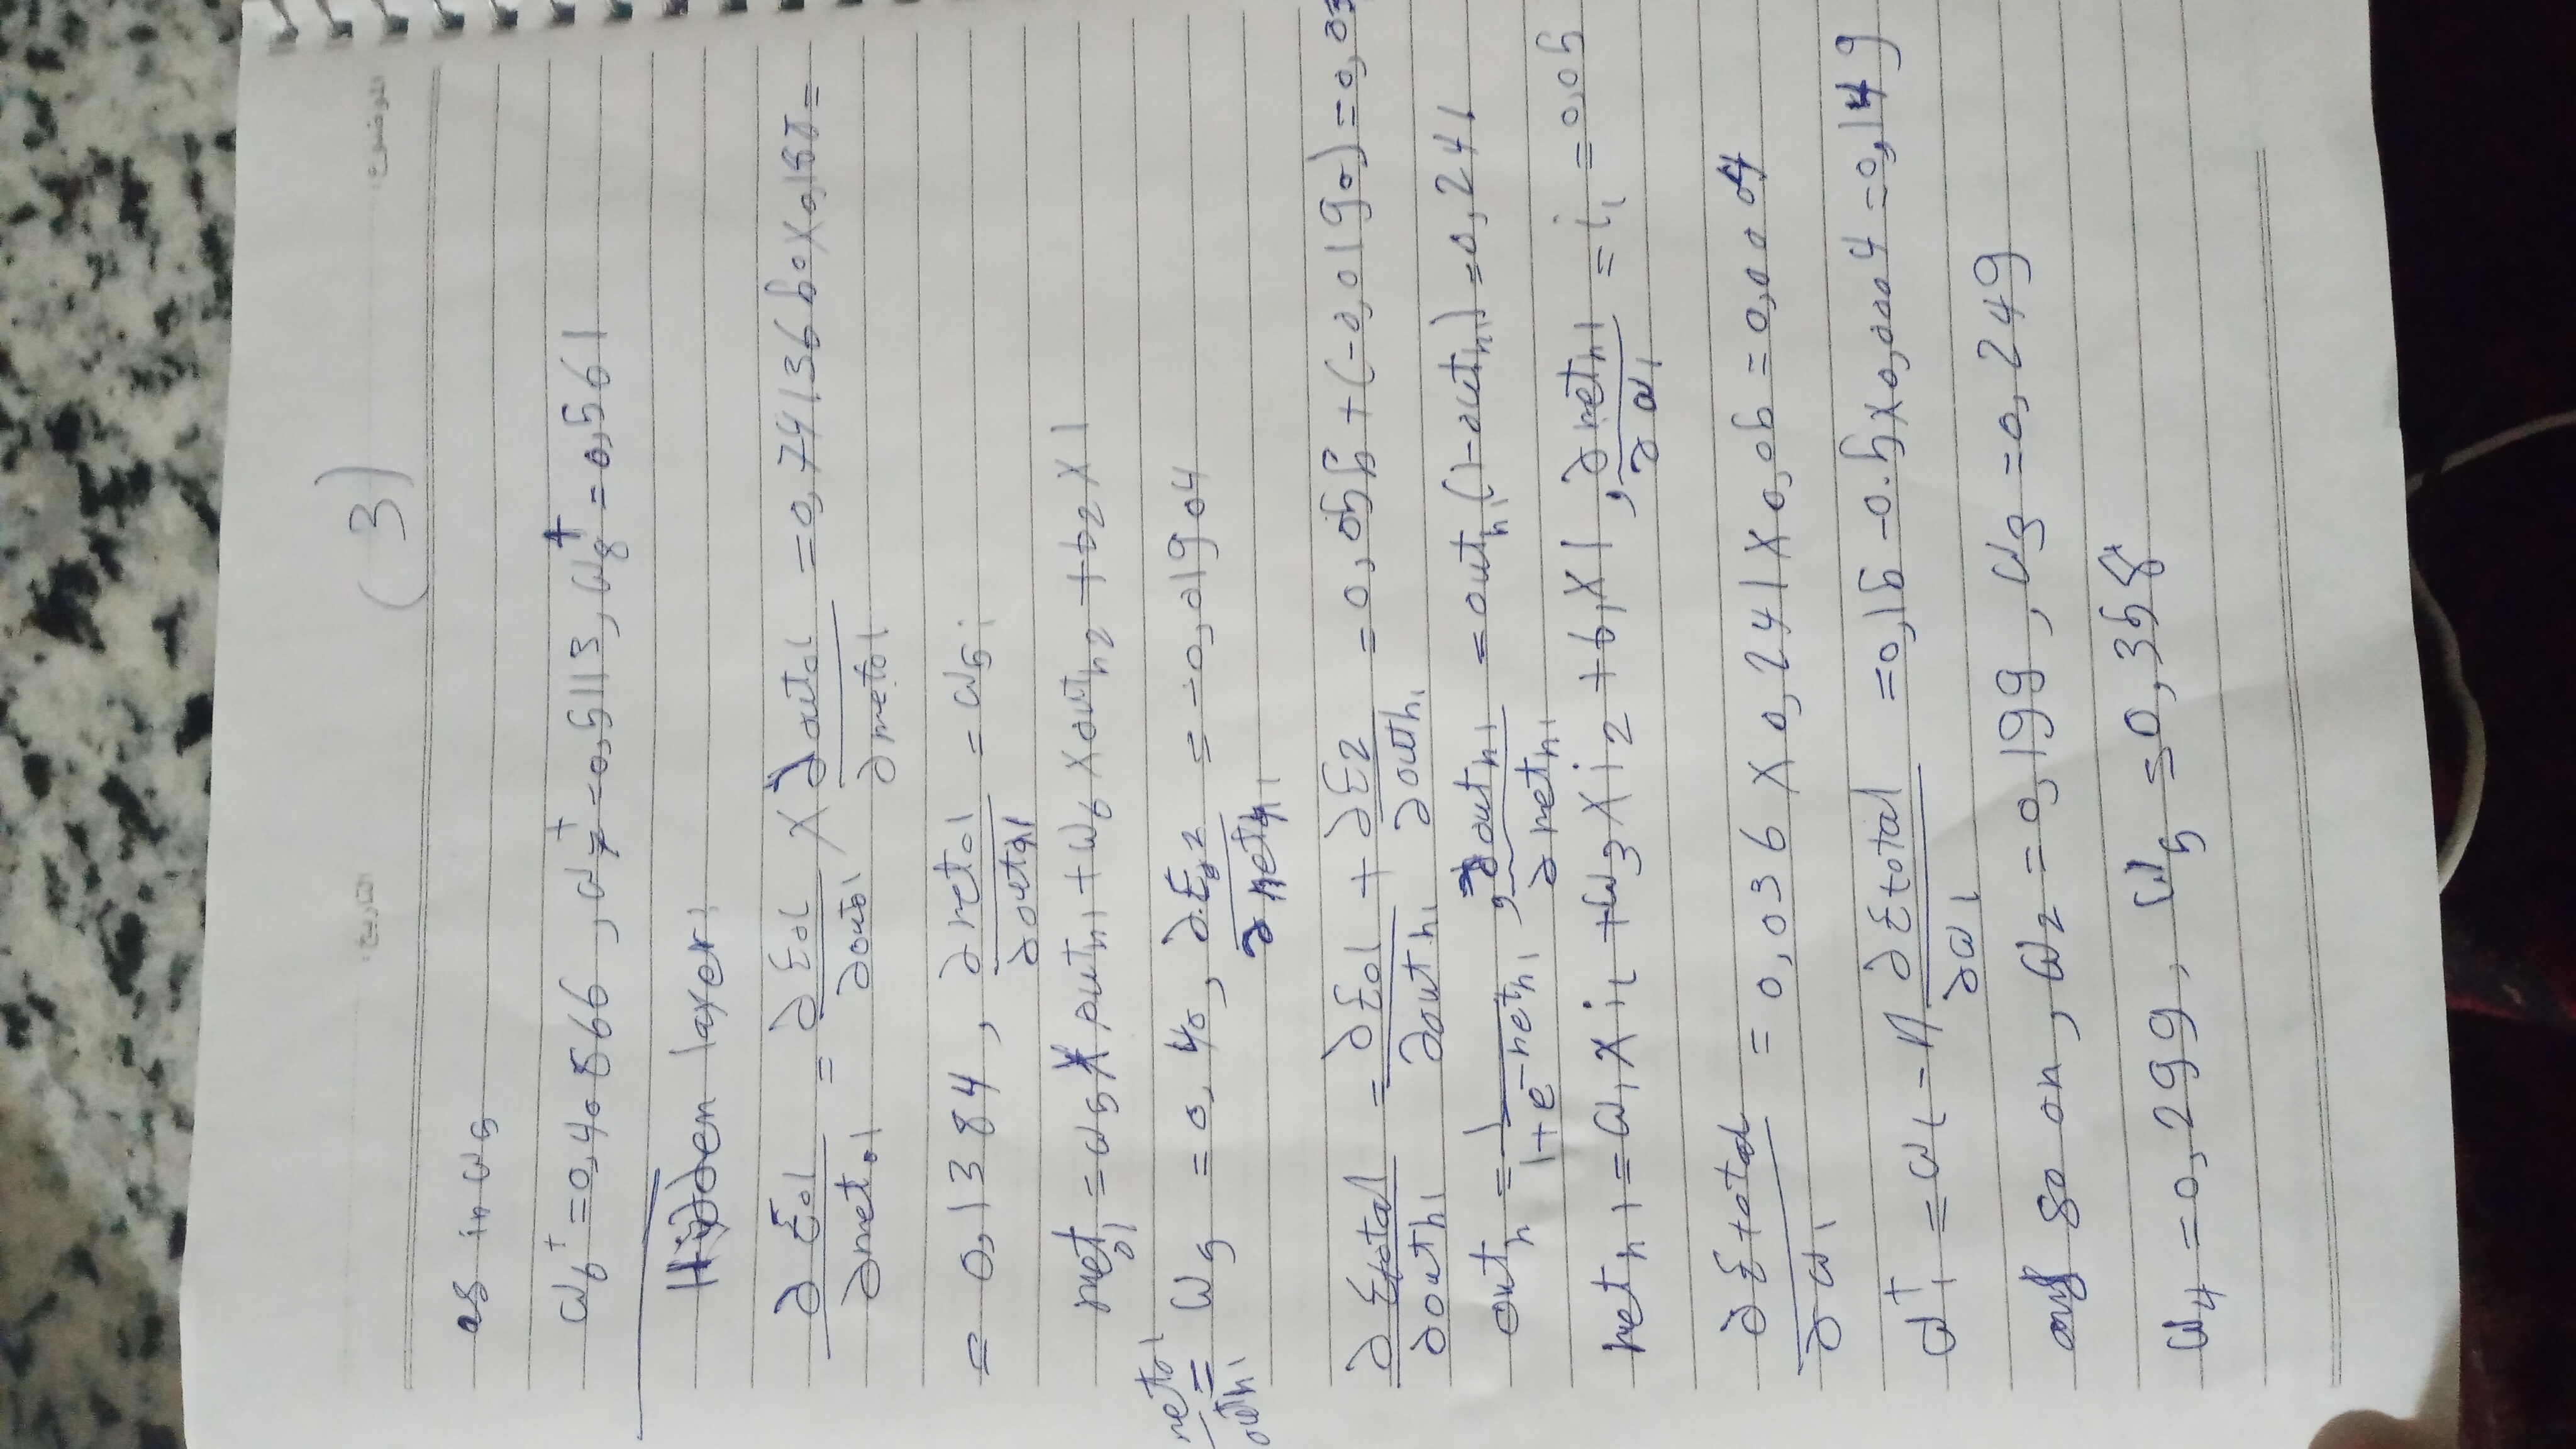 الموضوع: (3) التاريخ:
as in ω5
ω6⁺ = 0,40866 , ω7⁺ = 0,5113, ω8⁺ = 0,561
Hidden layer:
∂Eo1/∂neto1 = ∂Eo1/∂outo1 × ∂outo1/∂neto1 = 0,7413650 × 0,188 =
= 0,1384 , ∂neto1/∂outh1 = ω5 ;
neto1 = ω5 × outh1 + ω6 × outh2 + b2 × 1
neto1/outh1 = ω5 = 0,40, ∂Eo2/∂neth1 = -0,01904
∂Etotal/∂outh1 = ∂Eo1/∂outh1 + ∂E2/∂outh1 = 0,055 + (-0,0190) = 0,03
outh = 1/(1+e^-neth1) , ∂outh1/∂neth1 = outh1(1-outh1) = 0,241
neth1 = ω1 × i1 + ω3 × i2 + b1 × 1 , ∂neth1/∂ω1 = i1 = 0,05
∂Etotal/∂ω1 = 0,036 × 0,241 × 0,05 = 0,0004
ω1⁺ = ω1 - η ∂Etotal/∂ω1 = 0,15 - 0.5 × 0,0004 = 0,149
and so on, ω2 = 0,199 , ω3 = 0,249
ω4 = 0,299, ω5 = 0,358